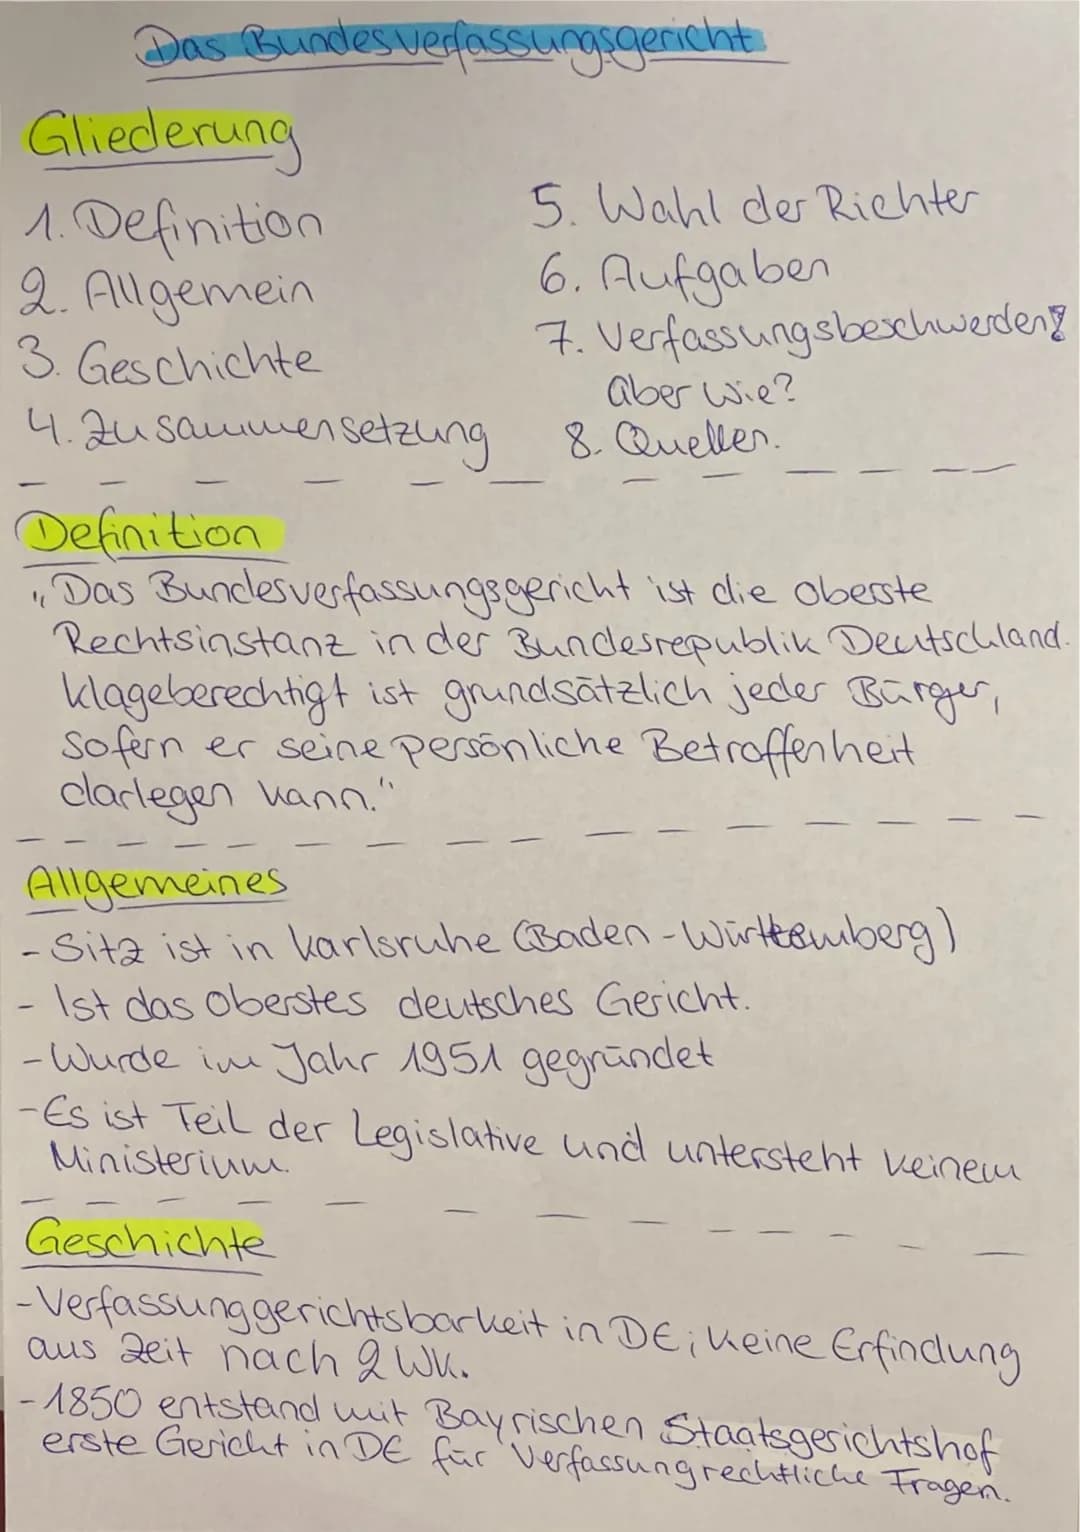 Das Bundesverfassungsgericht
Gliederung
1. Definition
2. Allgemein
3. Geschichte
4. Zusammensetzung
5. Wahl der Richter
6. Aufgaben
7. Verfassungsbeschwerden?
aber wie?
8. Quellen.
Definition
„Das Bundesverfassungsgericht ist die oberste
Rechtsinstanz in der Bundesrepublik Deutschland.
Klageberechtigt ist grundsätzlich jeder Bürger,
sofern er seine persönliche Betroffenheit
darlegen kann."
Allgemeines
- Sitz ist in Karlsruhe (Baden-Württemberg)
- Ist das oberstes deutsches Gericht.
- Wurde im Jahr 1951 gegründet
- Es ist Teil der Legislative und untersteht keinem
Ministerium.
Geschichte
- Verfassunggerichtsbarkeit in DE; keine Erfindung
aus Zeit nach 2 WK.
- 1850 entstand mit Bayrischen Staatsgerichtshof
erste Gericht in DE für Verfassungrechtliche Fragen.